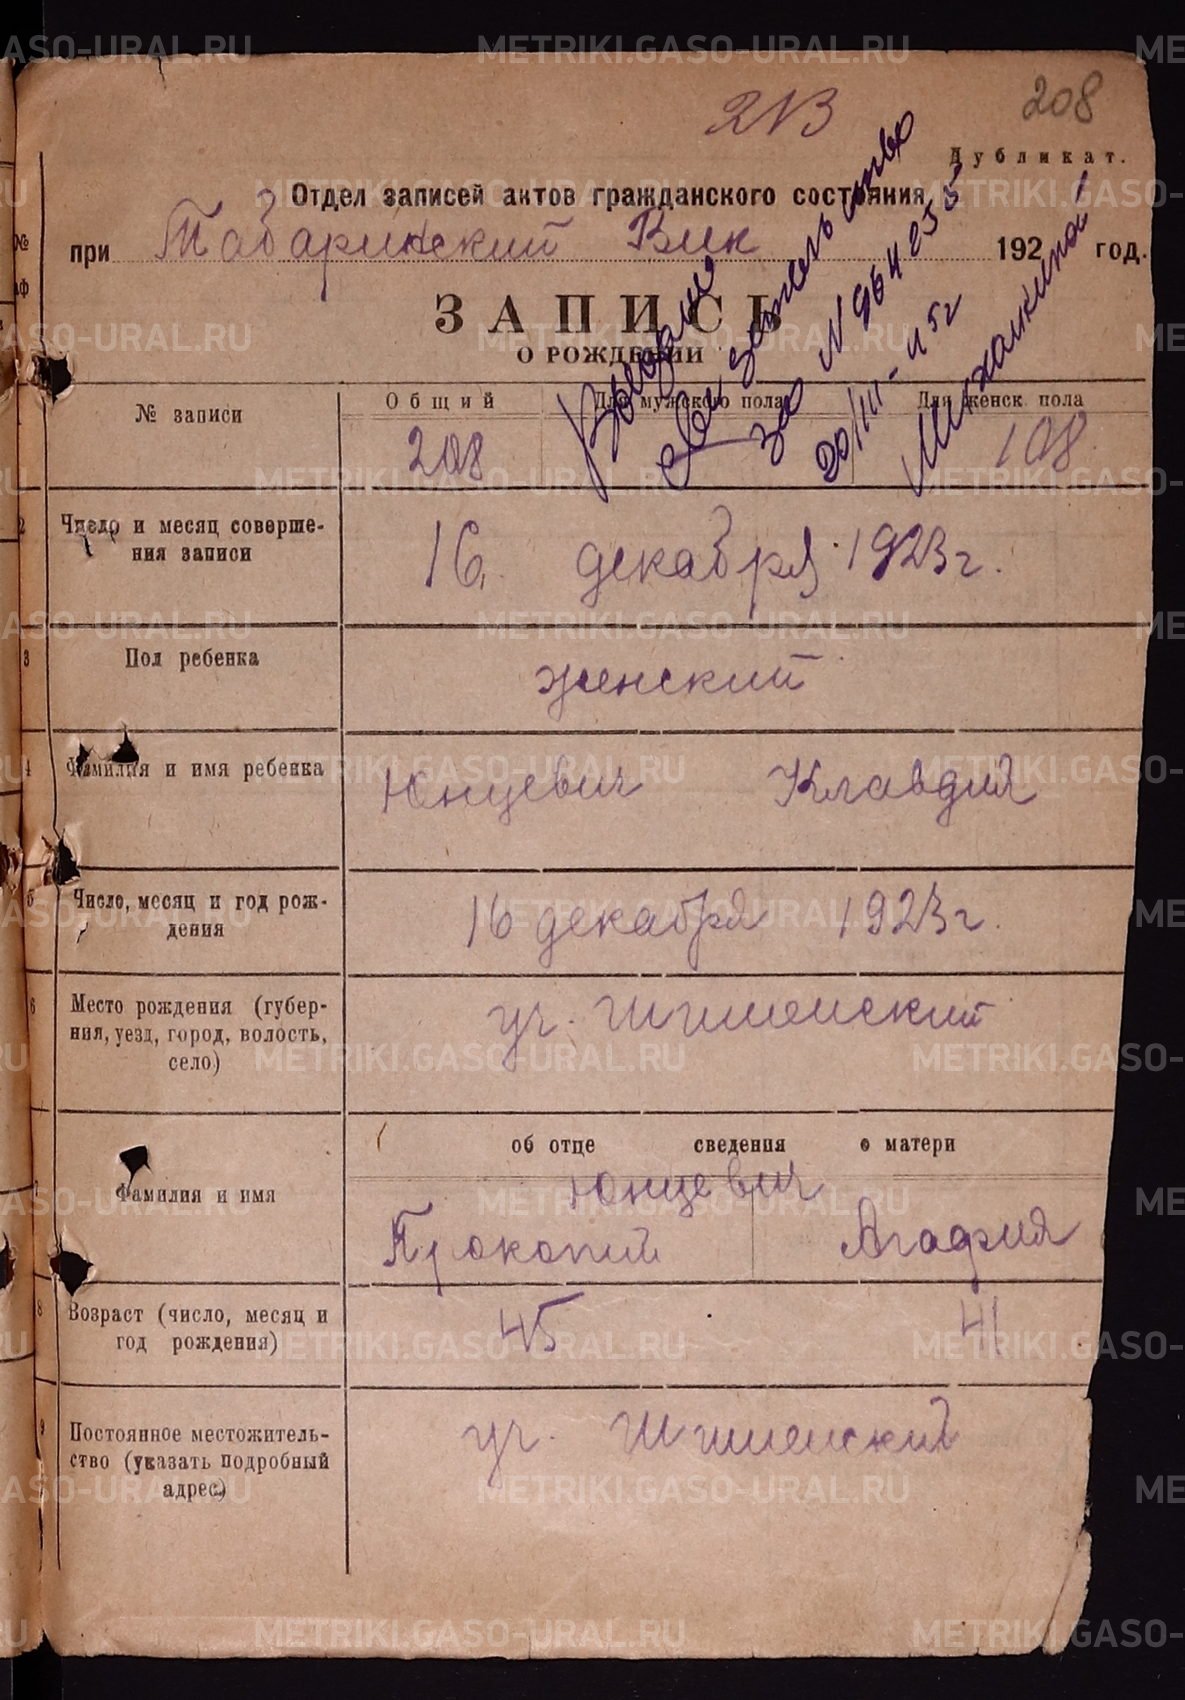 208
Дубликат.
Отдел записей актов гражданского состояния
при Табаринский Вик 192 год.
ЗАПИСЬ
О РОЖДЕНИИ
Выдано
свидетельство
за N 964255
20/III-45г
№ записи
Общий Для мужского пола Для женск. пола
208 108
2 Число и месяц соверше-
ния записи
16. декабря 1923г.
3 Пол ребенка женский
4 Фамилия и имя ребенка Юнцевич Клавдия
5 Число, месяц и год рож-
дения
16 декабря 1923г.
6 Место рождения (губер-
ния, уезд, город, волость,
село)
уч.
об отце сведения о матери
Юнцевич
Фамилия и имя Прокопий Агафия
8 Возраст (число, месяц и
год рождения)
45 41
9 Постоянное местожитель-
ство (указать подробный
адрес)
уч.
METRIKI.GASO-URAL.RU